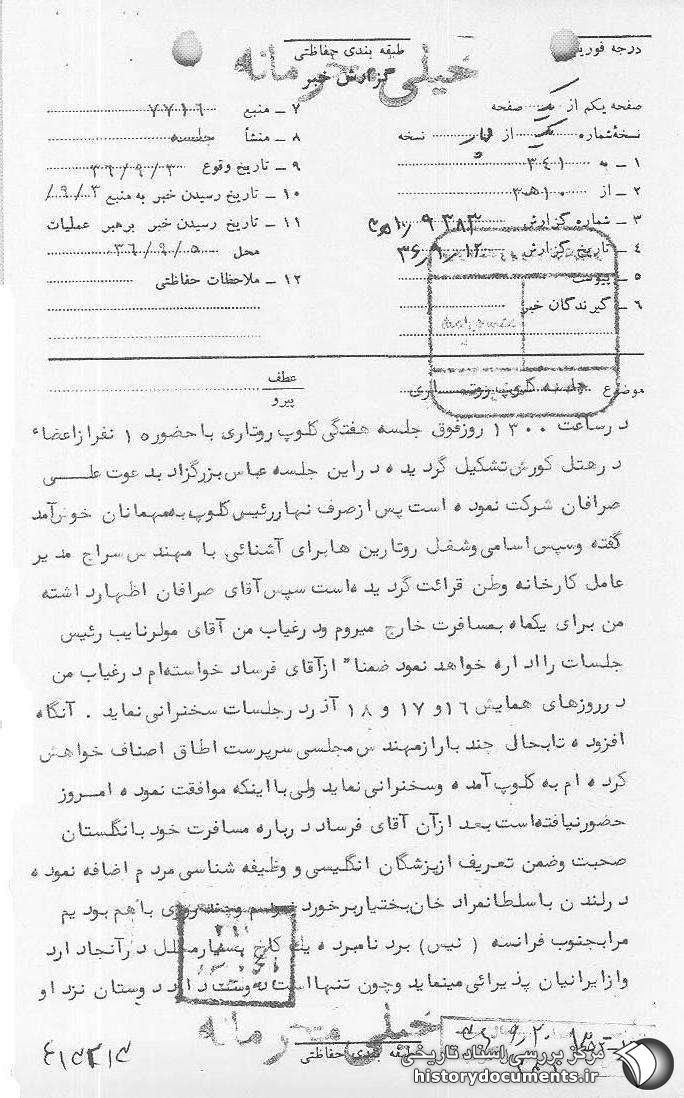 درجه فوریت
طبقه بندی حفاظتی
خیلی محرمانه
گزارش خبر
صفحه یکم از یک صفحه
نسخهٔ شماره یک از چهار نسخه
۱ ـ به ۳۴۱
۲ ـ از ۱۰ﻫ۳
۳ ـ شماره گزارش
۴ ـ تاریخ گزارش ۳۶/۹/۱۲
۵ ـ پیوست
۶ ـ گیرندگان خبر
۷ ـ منبع ۷۷۱۶
۸ ـ منشأ جلسه
۹ ـ تاریخ وقوع ۳۶/۹/۳
۱۰ ـ تاریخ رسیدن خبر به منبع ۳/۹/
۱۱ ـ تاریخ رسیدن خبر برهبر عملیات
محل ۳۶/۹/۵
۱۲ ـ ملاحظات حفاظتی
موضوع جلسه کلوپ روتاری
عطف
پیرو
در ساعت ۱۳۰۰ روز فوق جلسه هفتگی کلوپ روتاری با حضور ۱۵ نفر از اعضاء
در هتل کورش تشکیل گردیده در این جلسه عباس بزرگزاد بدعوت علی
صرافان شرکت نموده است پس از صرف نهار رئیس کلوپ به مهمانان خوش‌آمد
گفته وسپس اسامی وشغل روتارین ها برای آشنائی با مهندس سراج مدیر
عامل کارخانه وطن قرائت گردیده است سپس آقای صرافان اظهار داشته
من برای یکماه بمسافرت خارج میروم ودر غیاب من آقای مولر نایب رئیس
جلسات را اداره خواهد نمود ضمناً از آقای فرساد خواسته‌ام در غیاب من
در روزهای همایش ۱۶ و ۱۷ و ۱۸ آذر در جلسات سخنرانی نماید . آنگاه
افزوده تابحال چند بار از مهندس مجلسی سرپرست اطاق اصناف خواهش
کرده ام به کلوپ آمده وسخنرانی نماید ولی با اینکه موافقت نموده امروز
حضور نیافته‌است بعد از آن آقای فرساد درباره مسافرت خود بانگلستان
صحبت وضمن تعریف از پزشگان انگلیسی و وظیفه شناسی مردم اضافه نموده
در لندن با سلطانمراد خان بختیار برخورد نمودم وچند روزی باهم بودیم
مرا بجنوب فرانسه ( نیس) برد نامبرده یک کاخ بسیار مجلل در آنجا دارد
واز ایرانیان پذیرائی مینماید وچون تنها است دوست دارد دوستان نزد او
خیلی محرمانه
طبقه بندی حفاظتی
مرکز بررسی اسناد تاریخی
historydocuments.ir